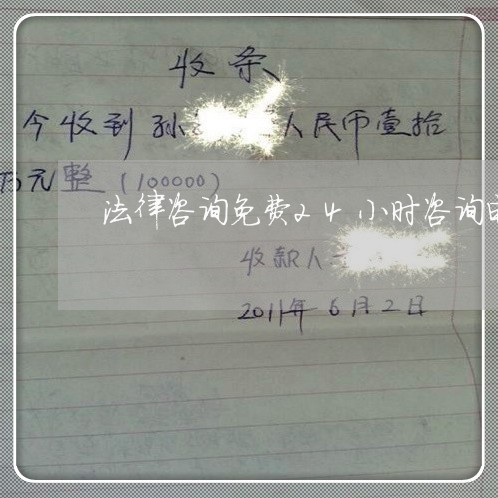 收条
今收到孙 人民币壹拾
万元整（100000）
法律咨询免费24小时咨询
收款人
2011年6月2日